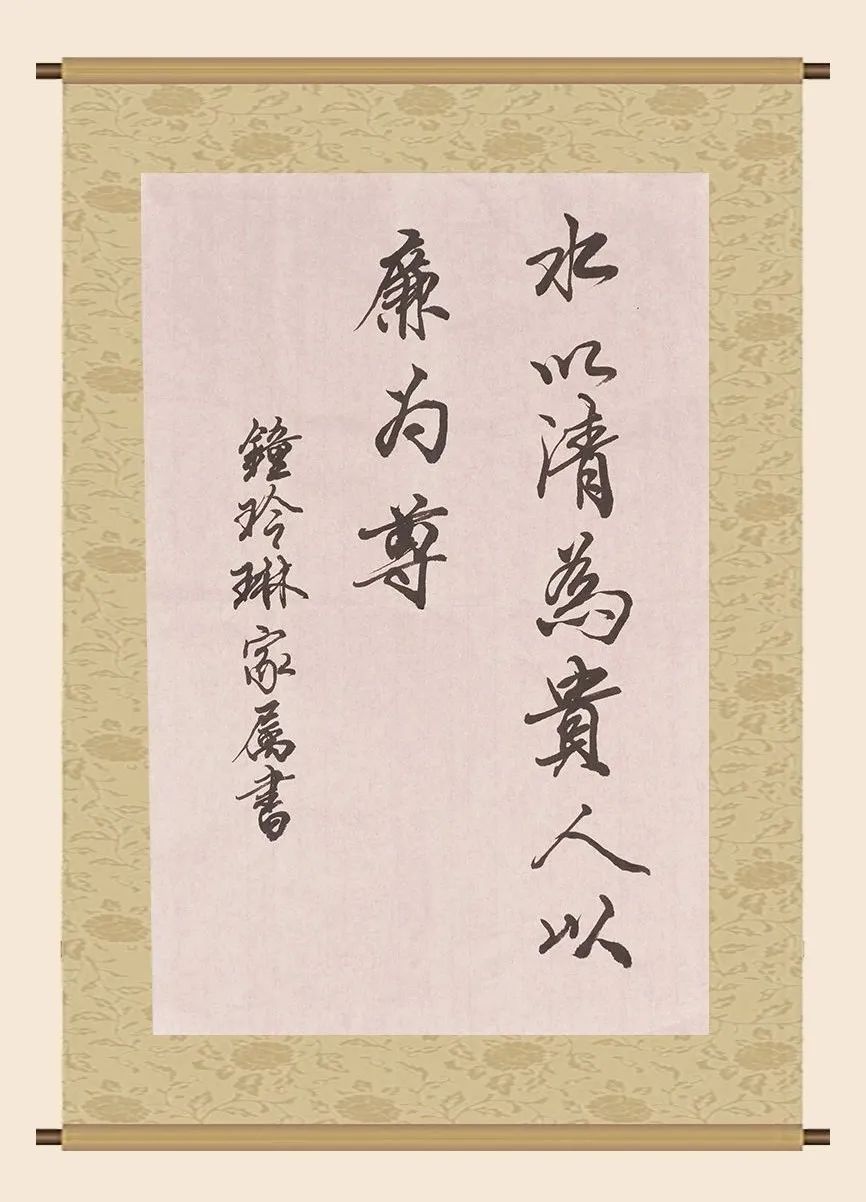 水以清為貴人以
廉为尊
鐘玲琳家属書